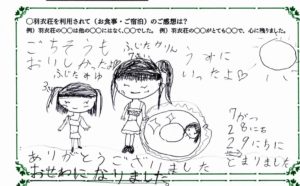 ○羽衣荘を利用されて（お食事・ご宿泊）のご感想は？
例）羽衣荘の○○は他の○○にはなく、○○でした。例）羽衣荘の○○がとても○○で、心に残りました。
ごちそうも
おいしかったよ♡
ふじたかりん
うすに
いったよ♡
7がつ
28にち
29にちに
とまりました
ありがとうございました
おせわになりました。